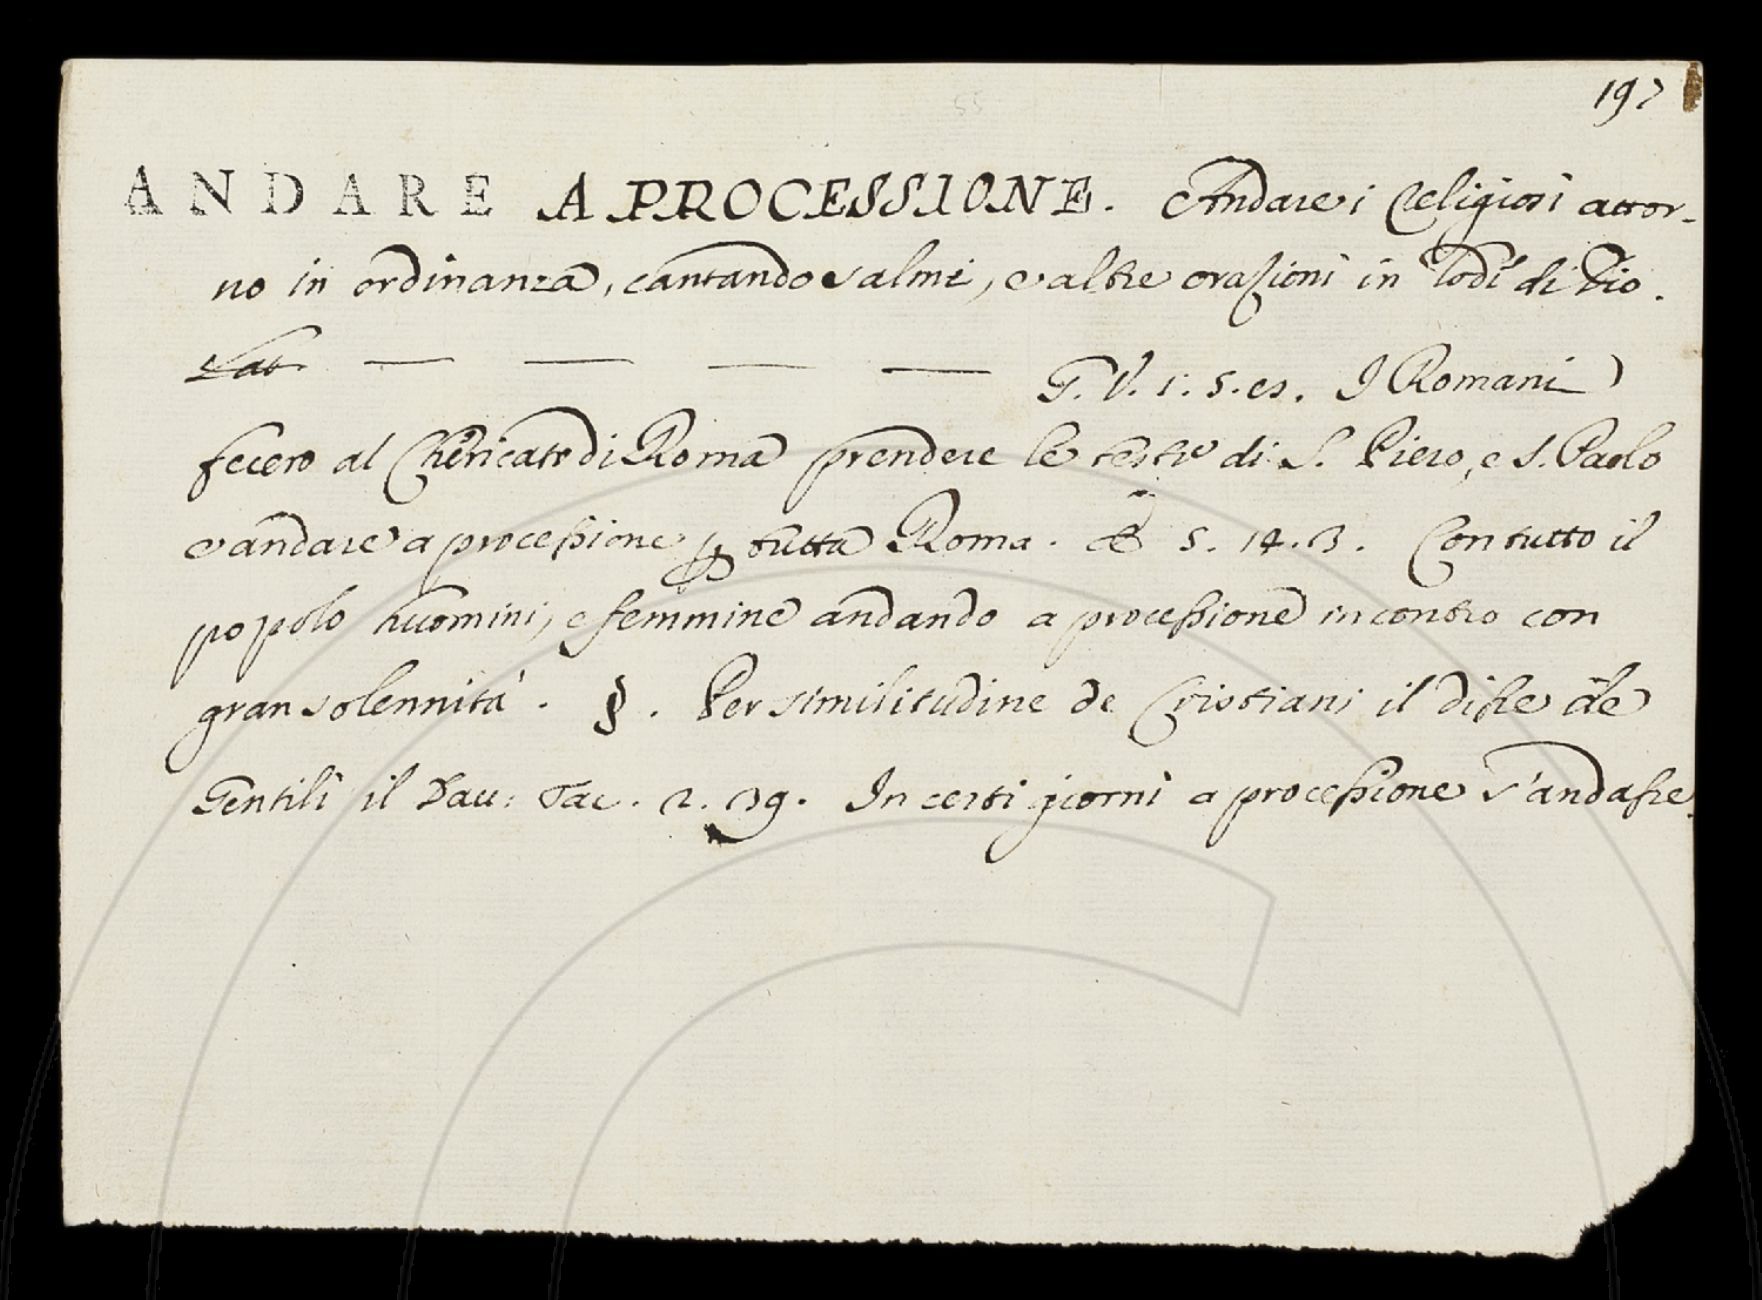 55
197
ANDARE A PROCESSIONE. Andare i religiosi attor-
no in ordinanza, cantando salmi, e altre orazioni in lodi di Dio.
Lat — — — —
G. V. 1. 5. es. I Romani
fecero al Chericato di Roma prendere le teste di S. Piero, e S. Paolo
e andare a processione ꝑ tutta Roma. & 5. 14. 3. Con tutto il
popolo huomini, e femmine andando a processione incontro con
gran solennità. §. Per similitudine de Cristiani il disse de
Gentili il Dau: Tac. 2. 39. In certi giorni a processione s'andasse